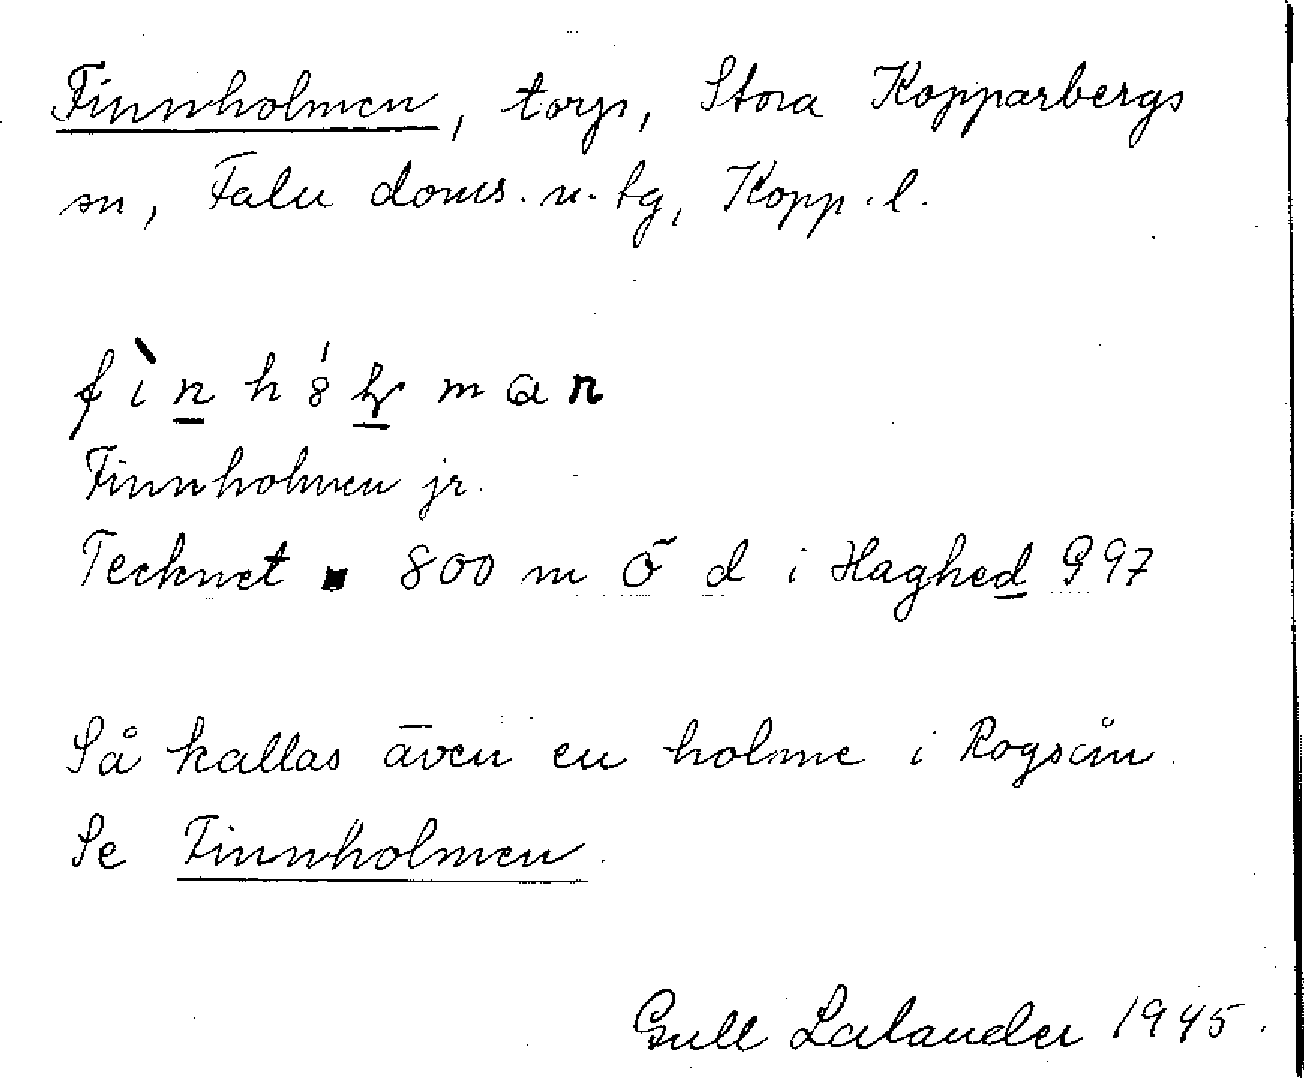 Finnholmen, torp, Stora Kopparbergs
sn, Falu doms. n. tg, Kopp. l.
Finnholmen jr.
Tecknet ■ 800 m Ö d i Haghed 997
Så kallas även en holme i Rogsån.
Se Finnholmen.
Gull Lalander 1945.